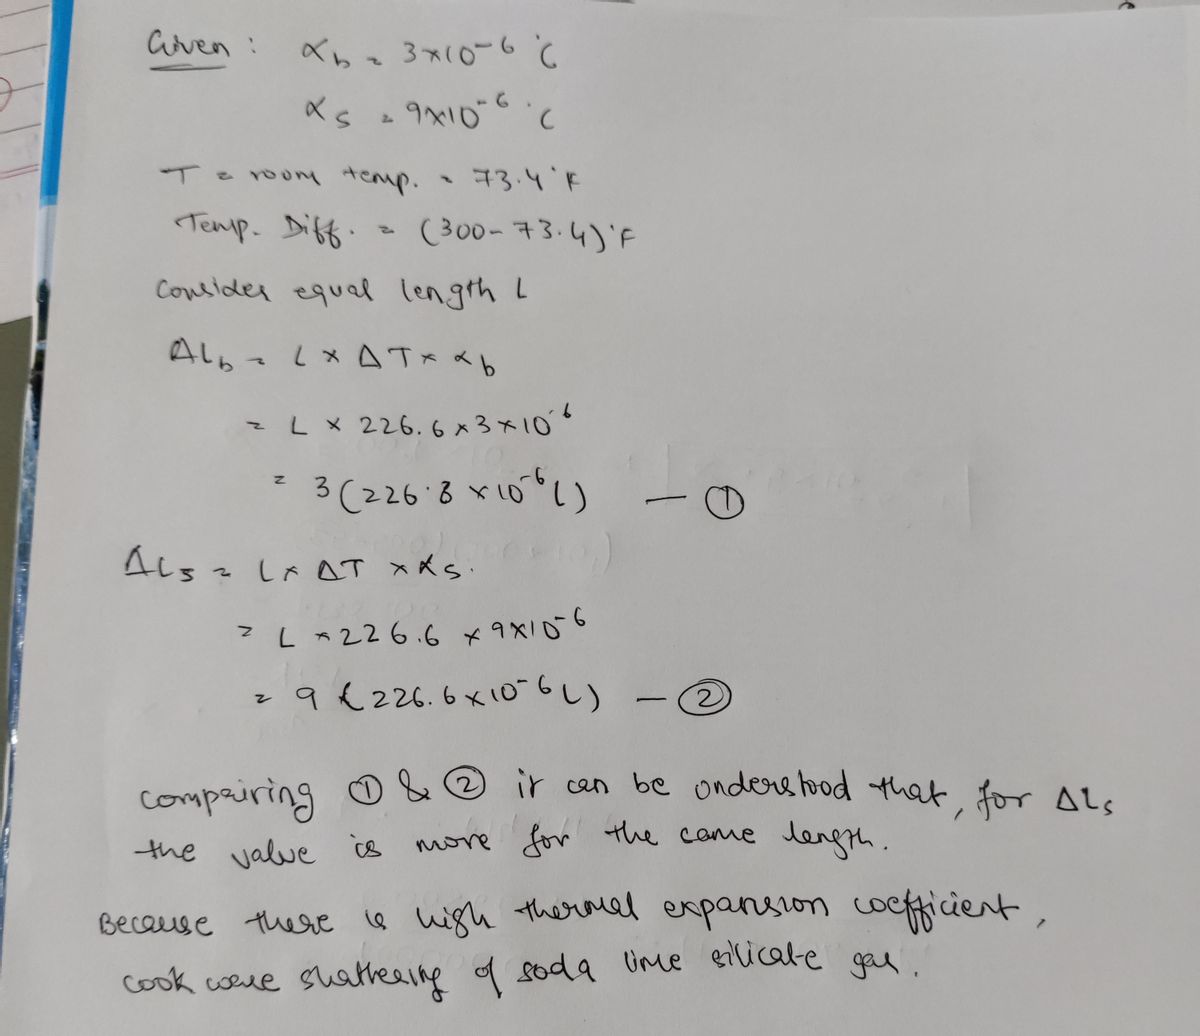 Given : αb = 3×10⁻⁶ °C
αs = 9×10⁻⁶ °C
T = room temp. = 73.4°F
Temp. Diff. = (300-73.4)°F
Consider equal length L
ΔLb = L × ΔT × αb
= L × 226.6 × 3 × 10⁻⁶
= 3(226.8 × 10⁻⁶ L) — ①
ΔLs = L × ΔT × αs.
= L × 226.6 × 9×10⁻⁶
= 9 (226.6×10⁻⁶ L) — ②
compairing ① & ② it can be onderstood that, for ΔLs
the value is more for the same length.
Because there is high thermal expansion coefficient,
cook ware shattering of soda lime silicate gas.